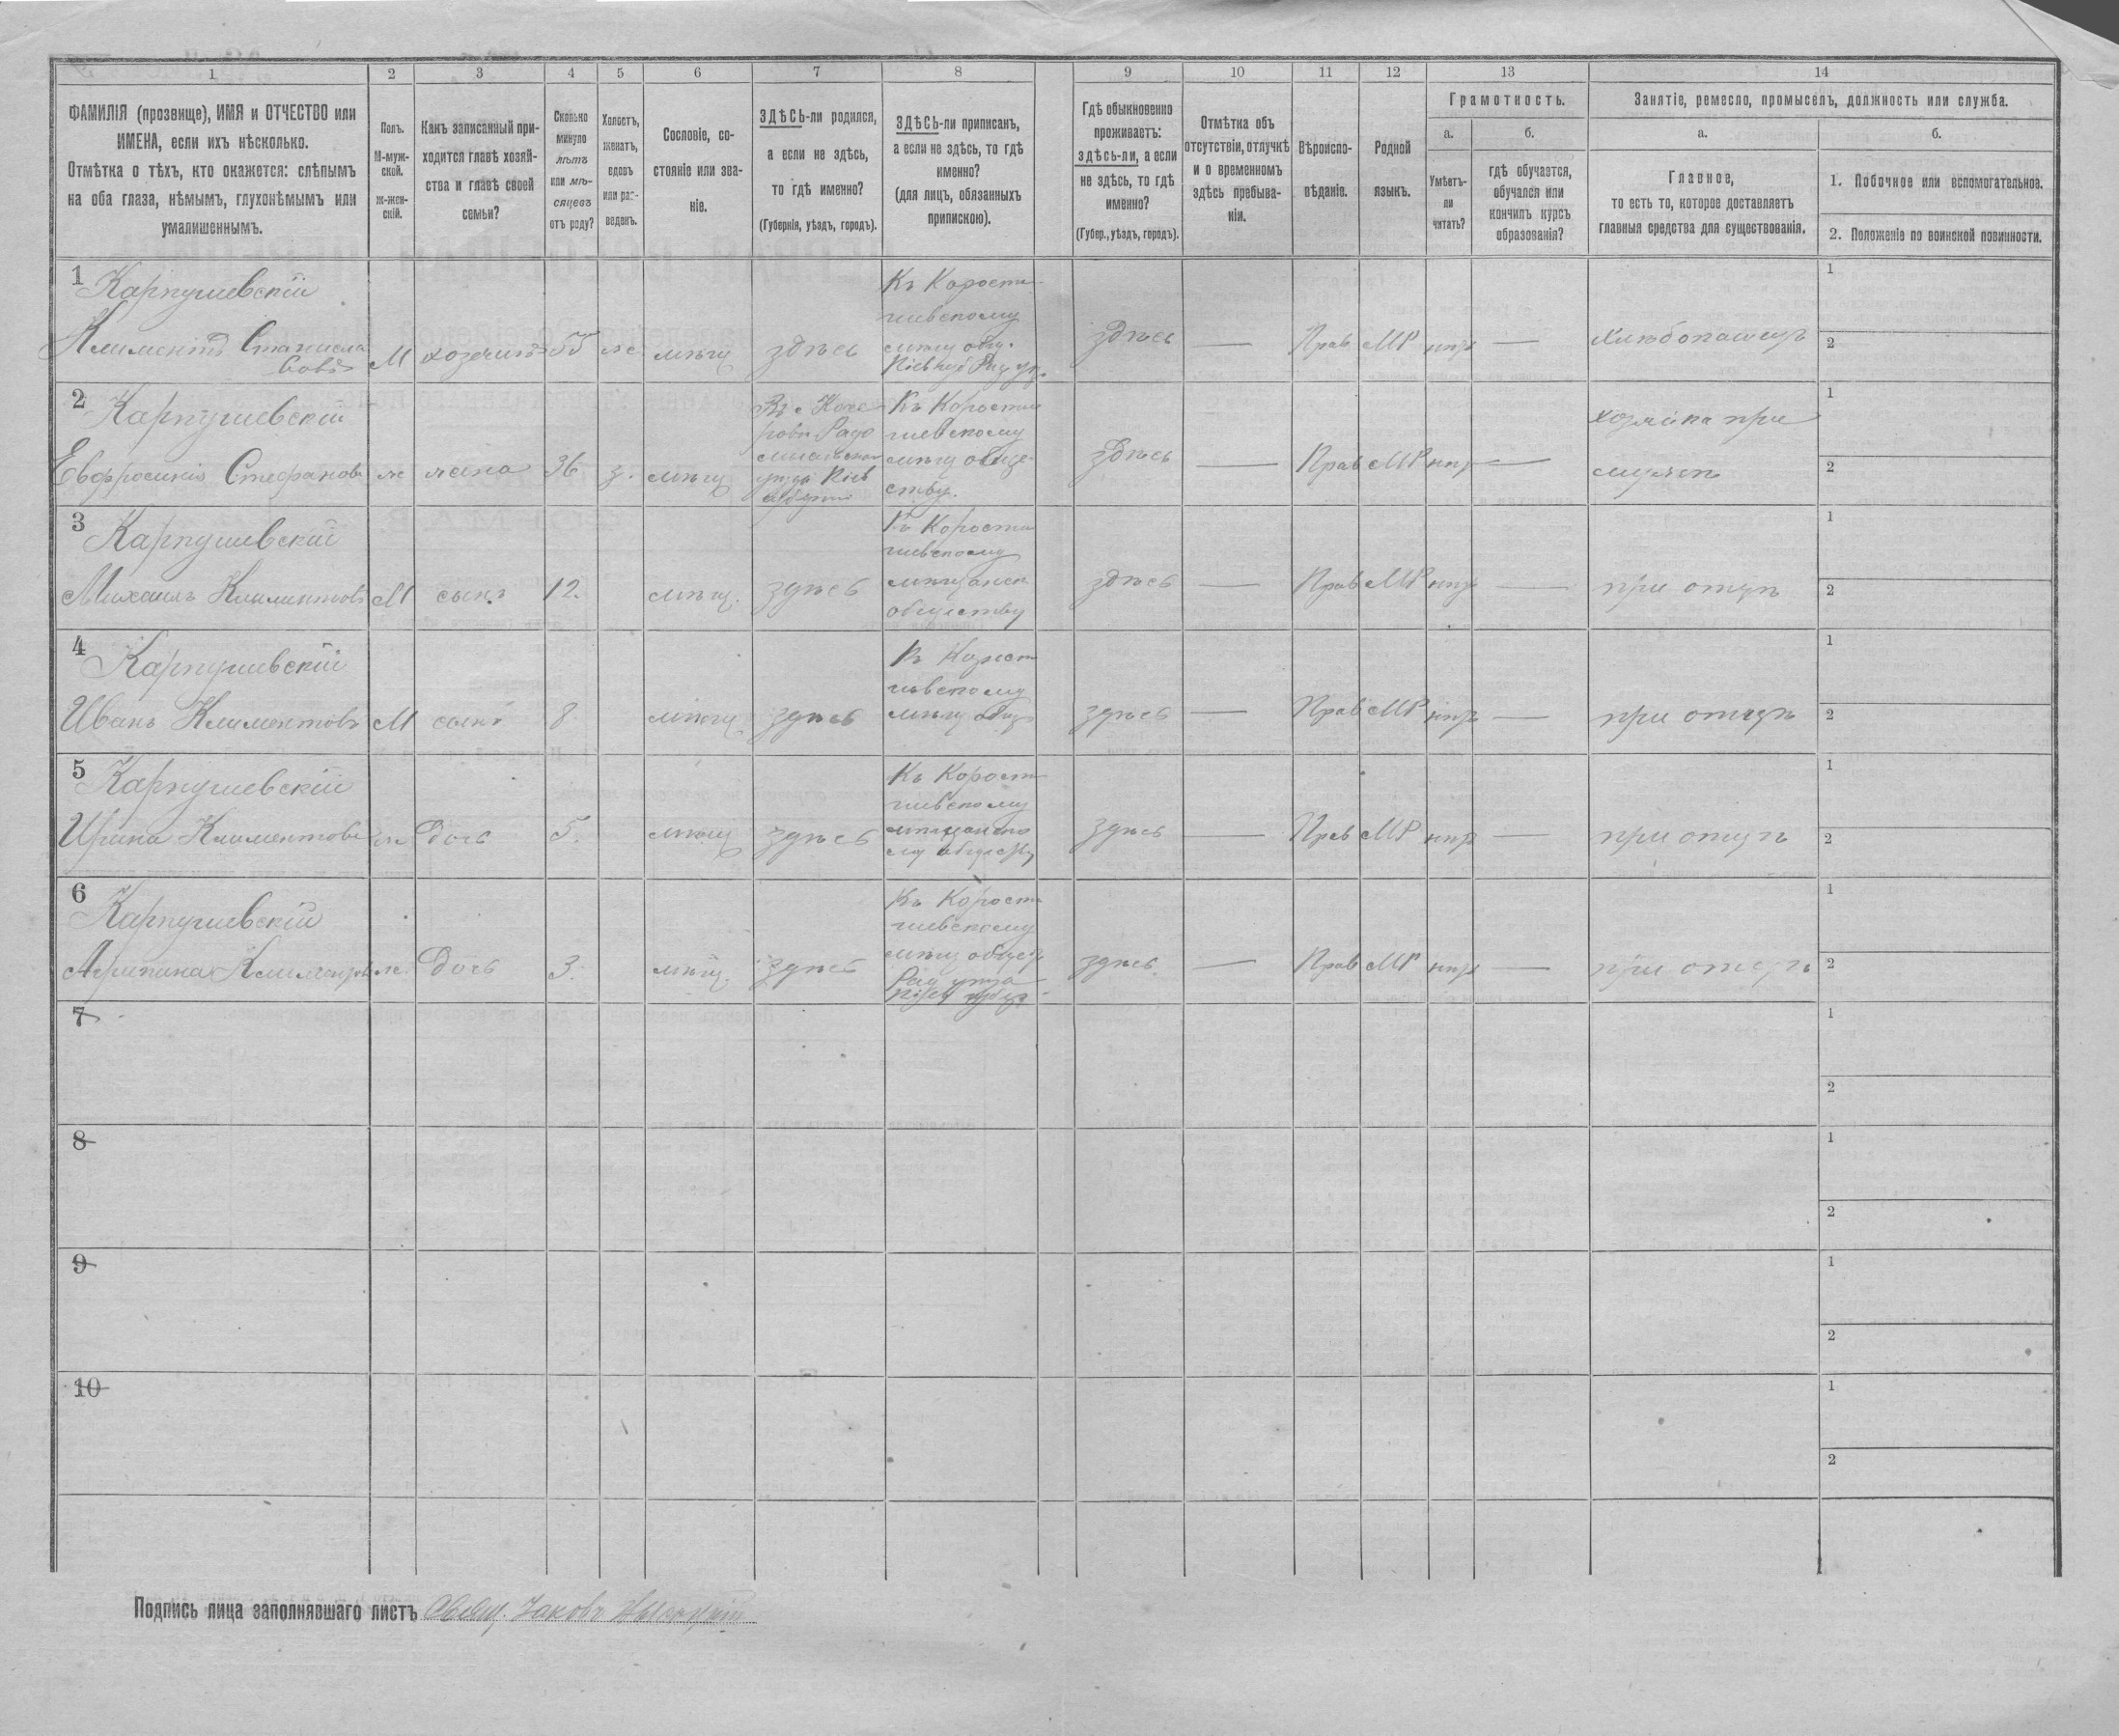 1 2 3 4 5 6 7 8 9 10 11 12 13 14
ФАМИЛІЯ (прозвище), ИМЯ и ОТЧЕСТВО или
ИМЕНА, если ихъ нѣсколько.
Отмѣтка о тѣхъ, кто окажется: слѣпымъ
на оба глаза, нѣмымъ, глухонѣмымъ или
умалишеннымъ.
Полъ.
М-муж-
ской.
Ж-жен-
скій.
Какъ записанный при-
ходится главѣ хозяй-
ства и главѣ своей
семьи?
Сколько
минуло
лѣтъ
или мѣ-
сяцевъ
отъ роду?
Холостъ,
женатъ,
вдовъ
или раз-
веденъ.
Сословіе, со-
стояніе или зва-
ніе.
ЗДѢСЬ-ли родился,
а если не здѣсь,
то гдѣ именно?
(Губернія, уѣздъ, городъ).
ЗДѢСЬ-ли приписанъ,
а если не здѣсь, то гдѣ
именно?
(для лицъ, обязанныхъ
припискою).
Гдѣ обыкновенно
проживаетъ:
здѣсь-ли, а если
не здѣсь, то гдѣ
именно?
(Губер., уѣздъ, городъ).
Отмѣтка объ
отсутствіи, отлучкѣ
и о временномъ
здѣсь пребыва-
ніи.
Вѣроиспо-
вѣданіе.
Родной
языкъ.
Грамотность.
а.
Умѣетъ-
ли
читать?
б.
гдѣ обучается,
обучался или
кончилъ курсъ
образованія?
Занятіе, ремесло, промыселъ, должность или служба.
а.
Главное,
то есть то, которое доставляетъ
главныя средства для существованія.
б.
1. Побочное или вспомогательное.
2. Положеніе по воинской повинности.
1 Карпушевскій
Климентъ Станисла
вовъ
М хозяинъ 55 ж мѣщ здѣсь
Къ Корости
шевскому
мѣщ общ.
Кіев губ Рад уѣз.
здѣсь — Прав МР нѣтъ — Хлѣбопашецъ
1
2
2 Карпушевскій
Евфросинія Стефанова ж жена 36 з. мѣщ
Въ с Коче
рово Радо
мысльскаго
уѣзда Кіев
губерніи
Къ Корости
шевскому
мѣщ обще
ству.
здѣсь — Прав МР нѣтъ —
хозяйка при
мужѣ
1
2
3 Карпушевскій
Михаилъ Климентовъ М сынъ 12. мѣщ. здѣсь
Къ Корости
шевскому
мѣщанск
обществу
здѣсь — Прав МР нѣтъ — при отцѣ
1
2
4 Карпушевскій
Иванъ Климентовъ М сынъ 8 мѣщ здѣсь
шевскому
мѣщ общ
здѣсь — Прав МР нѣтъ — при отцѣ
1
2
5 Карпушевскій
Ирина Климентова ж дочь 5. мѣщ здѣсь
Къ Корости
шевскому
мѣщанско
му обществу
здѣсь — Прав МР нѣтъ — при отцѣ
1
2
6 Карпушевскій
Агрипина ж. дочь 3. мѣщ. здѣсь
Къ Корости
шевскому
мѣщ общес
Рад уѣзда
Кіев губер
здѣсь — Прав МР нѣтъ — при отцѣ
1
2
7
1
2
8
1
2
9
1
2
10
1
2
Подпись лица заполнявшаго листъ